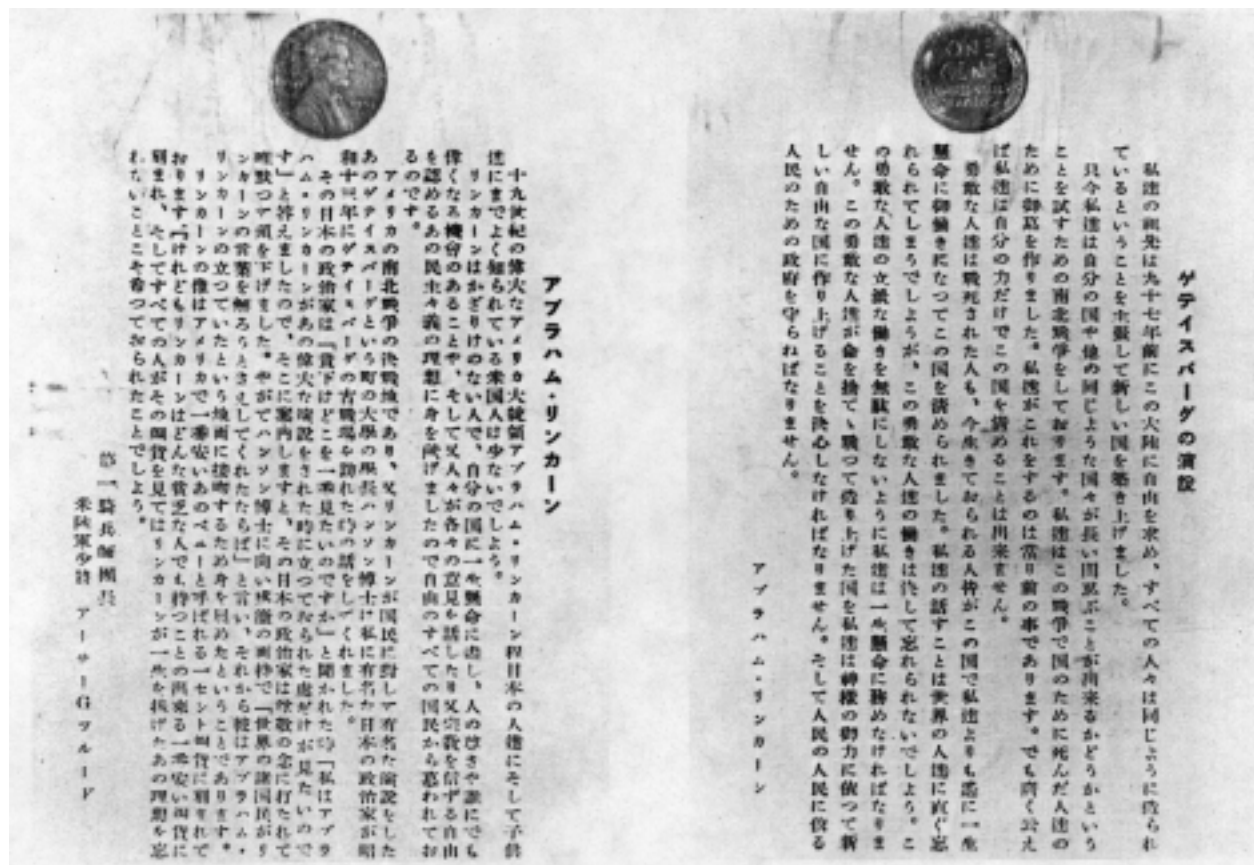 ONE
CENT
ゲテイスバーグの演説
私達の祖先は九十七年前にこの大陸に自由を求め、すべての人々は同じように造られ
ているということを主張して新しい国を築き上げました。
只今私達は自分の国や他の同じような国々が長い間ことが出来るかどうかという
ことを試すための南北戦爭をしております。私達はこの戦爭で国のために死んだ人達の
ために御墓を作りました。私達がこれをするのは當り前の事であります。でも
ば私達は自分の力だけでこの国を清めることは出来ません。
勇敢な人達は戦死された人も、今生きておられる人皆がこの国で私達よりも一生
懸命に御働きになつてこの国を清められました。私達の話すことは世界の人達に直ぐ忘
れられてしまうでしようが、この勇敢な人達の働きは決して忘れられないでしよう。こ
の勇敢な人達の立派な働きを無駄にしないように私達は一生懸命に務めなければなりま
せん。この勇敢な人達が命を捨てゝ戦つて造り上げた国を私達は神様の御力に依つて新
しい自由な国に作り上げることを決心しなければなりません。そして人民の人民に依る
人民のための政府を守らねばなりません。
アブラハム・リンカーン
アブラハム・リンカーン
十九世紀の偉大なアメリカ大統領アブラハム・リンカーン程日本の人達にそして子供
達にまでよく知られている米国人は少ないでしよう。
リンカーンはかざりけのない人で、自分の国に一生懸命に盡し、人の尊さや誰にでも
偉くなる機會のあることや、そして又人々が各々の意見を話したり又宗教を信ずる自由
を認めるあの民主々義の理想に身を捧げましたので自由のすべての国民から慕われてお
るのです。
アメリカの南北戰爭の決戰地であり、又リンカーンが国民に對して有名な演説をした
あのゲテイスバーグという町の大學の學長ハンソン博士は私に有名な日本の政治家が昭
和十三年にゲテイスバーグの古戰場を訪れた時の話をしてくれました。
その日本の政治家は「貴下はどこを一番見たいのですか」と聞かれた時「私はアブラ
ハム・リンカーンがあの偉大な演説をされた時に立つておられた處だけが見たいので
す」と答えましたので、そこに案内しますと、その日本の政治家は尊敬の念に打たれて
暫默つて頭を下げました。やがてハンソン博士に向い感激の面持で「世界の諸国民がリ
ンカーンの言葉を解ろうとさえしてくれたならば」と言い、それから彼はアブラハム・
リンカーンの立つていたという地面に接吻するため身を屈めたということであります。
リンカーンの像はアメリカで一番安いあのペニーと呼ばれる一セント銅貨に刻まれて
おります。けれどもリンカーンはどんな貧乏な人でも持つことの出来る一番安い銅貨に
刻まれ、そしてすべての人がその銅貨を見てはリンカーンが一生を捧げたあの理想を忘
れないことこそ希つておられたことでしよう。
第一騎兵師團長
米陸軍少將 アーサーGツルード